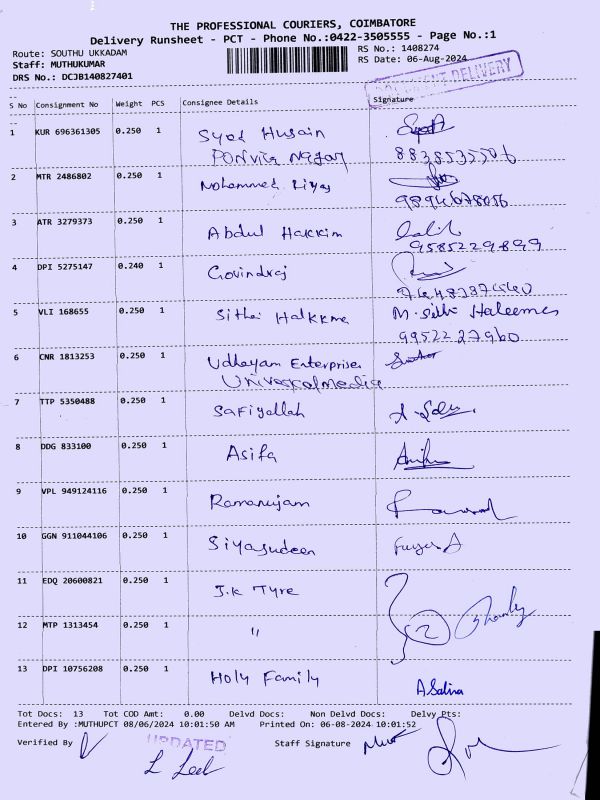 THE PROFESSIONAL COURIERS, COIMBATORE
Delivery Runsheet - PCT - Phone No.:0422-3505555 - Page No.:1
Route: SOUTHU UKKADAM
RS No.: 1408274
Staff: MUTHUKUMAR
RS Date: 06-Aug-2024
DRS No.: DCJB140827401
DELIVERY
S No Consignment No Weight PCS Consignee Details Signature
1 KUR 696361305 0.250 1 Syed Husain
Ponvila Nagar 8838535506
2 MTR 2486802 0.250 1 Mohammed Liyas
9894678056
3 ATR 3279373 0.250 1 Abdul Hakkim
9585229899
4 DPI 5275147 0.240 1 Govindraj
5 VLI 168655 0.250 1 Sithi Halkkma M. Sithi Haleemas
9952227960
6 CNR 1813253 0.250 1 Udhayam Enterprises
Universalmedia
7 TTP 5350488 0.250 1 Safiyallah
8 DDG 833100 0.250 1 Asifa
9 VPL 949124116 0.250 1 Ramanujam
10 GGN 911044106 0.250 1 Siyasudeen
11 EDQ 20600821 0.250 1 J.K Tyre
12 MTP 1313454 0.250 1 "
13 DPI 10756208 0.250 1 Holy Family A Salina
Tot Docs: 13 Tot COD Amt: 0.00 Delvd Docs: Non Delvd Docs: Delvy Pts:
Entered By :MUTHUPCT 08/06/2024 10:01:50 AM Printed On: 06-08-2024 10:01:52
Verified By UPDATED Staff Signature